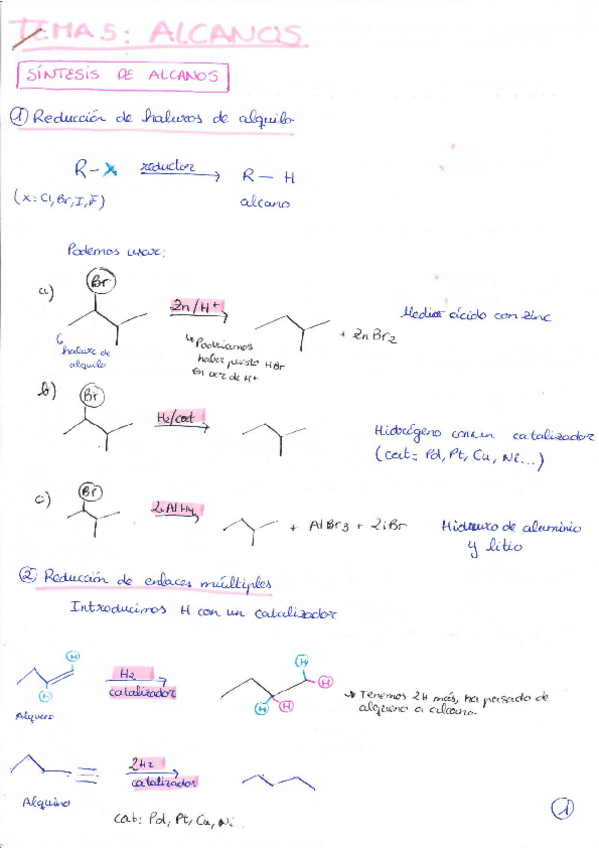 TEMA 5: ALCANOS
SÍNTESIS DE ALCANOS
① Reducción de haluros de alquilo
R-X reductor R-H
(x: Cl, Br, I, F) alcano
Podemos usar:
a) Br Zn/H+ + ZnBr2 Medio ácido con zinc
haluro de alquilo
Podríamos
haber puesto HBr
en vez de H+
b) Br H2/cat Hidrógeno con un catalizador
(cat: Pd, Pt, Cu, Ni...)
c) Br LiAlH4 + AlBr3 + LiBr Hidruro de aluminio
y litio
② Reducción de enlaces múltiples
Introducimos H con un catalizador
H H H2 catalizador H H H H
Alqueno
Tenemos 2H más, ha pasado de
alqueno a alcano.
2H2
catalizador
Alquino
cat: Pd, Pt, Cu, Ni.
1